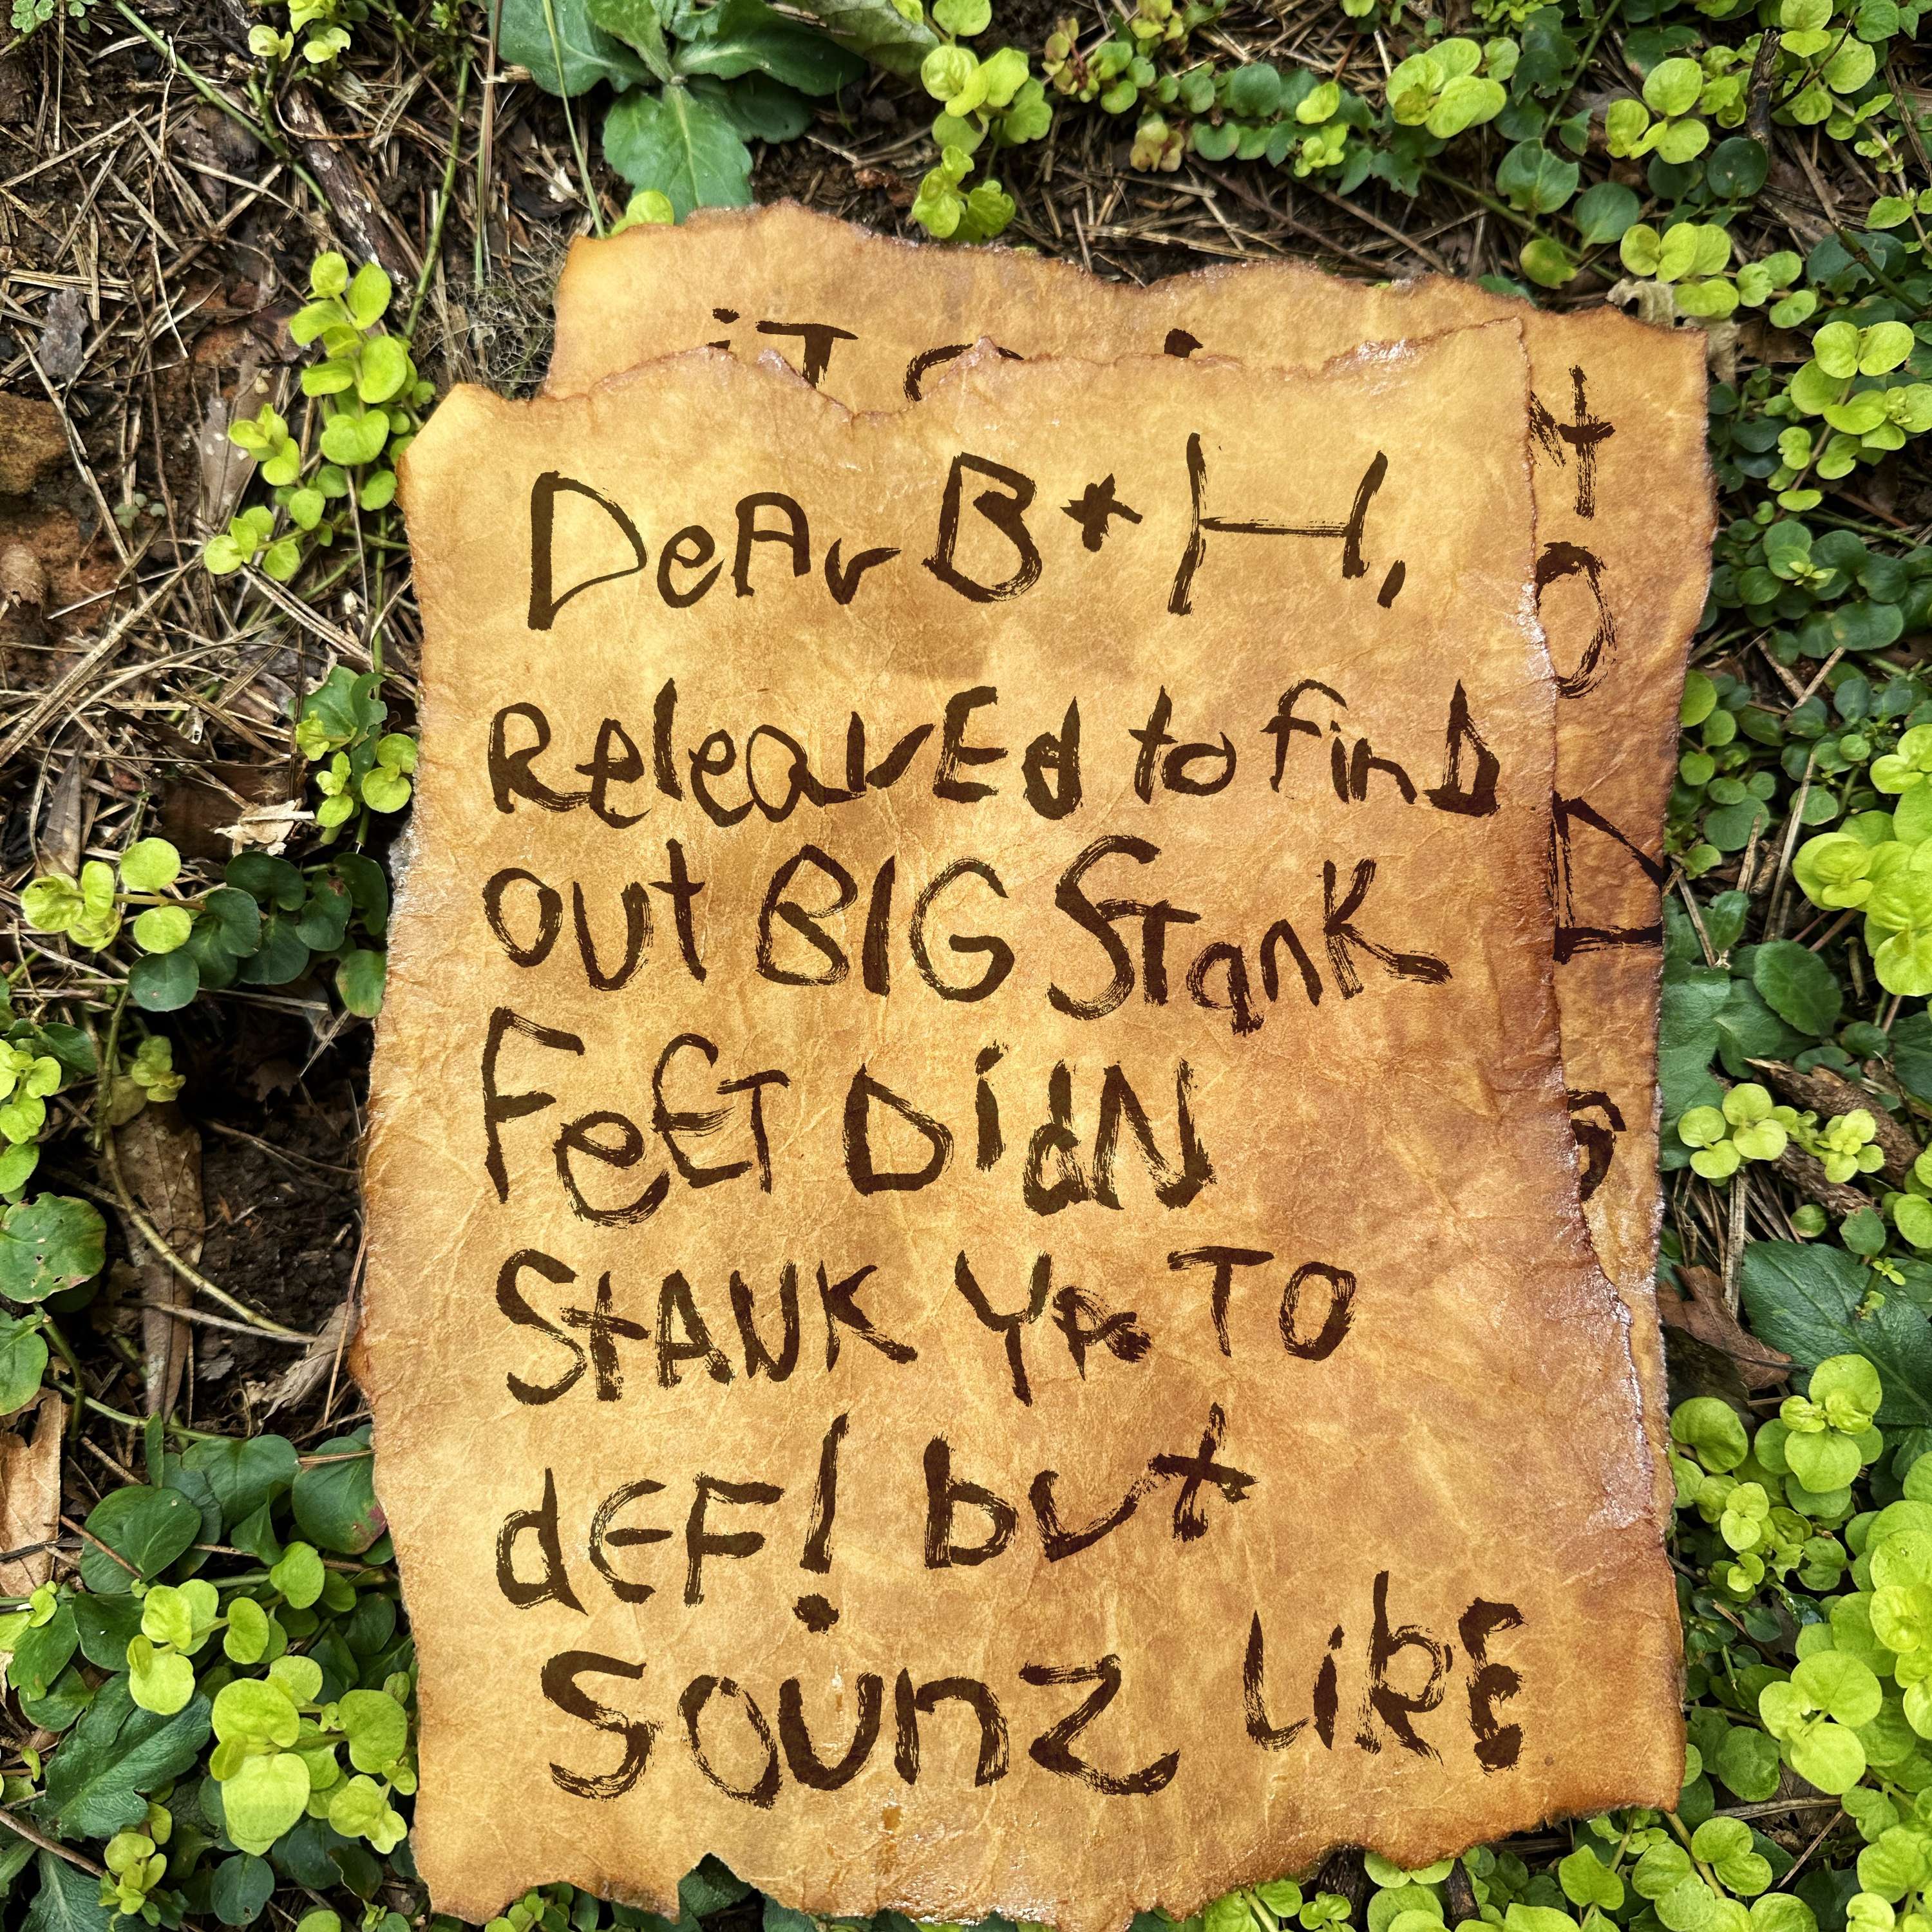 iT
DeAr B + H,
ReleavEd to finD
out BIG STanK
FeeT DidN
StANK Ya TO
dEF! but
sounz LikE